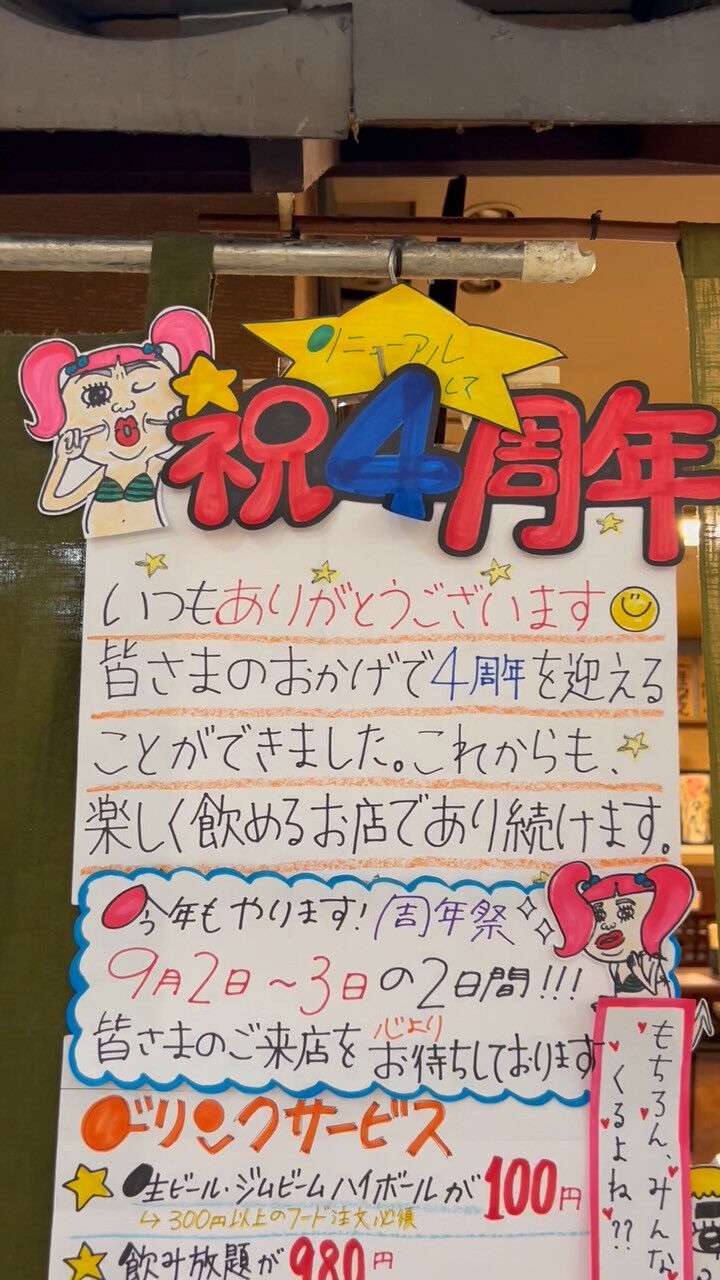 リニューアル
して
祝4周年
いつもありがとうございます
皆さまのおかげで4周年を迎える
ことができました。これからも、
楽しく飲めるお店であり続けます。
今年もやります!周年祭
9月2日~3日の2日間!!!
皆さまのご来店を心よりお待ちしております
もちろん、みんな
くるよね??
ドリンクサービス
生ビール・ジムビームハイボールが100円
→300円以上のフード注文必須
飲み放題が980円